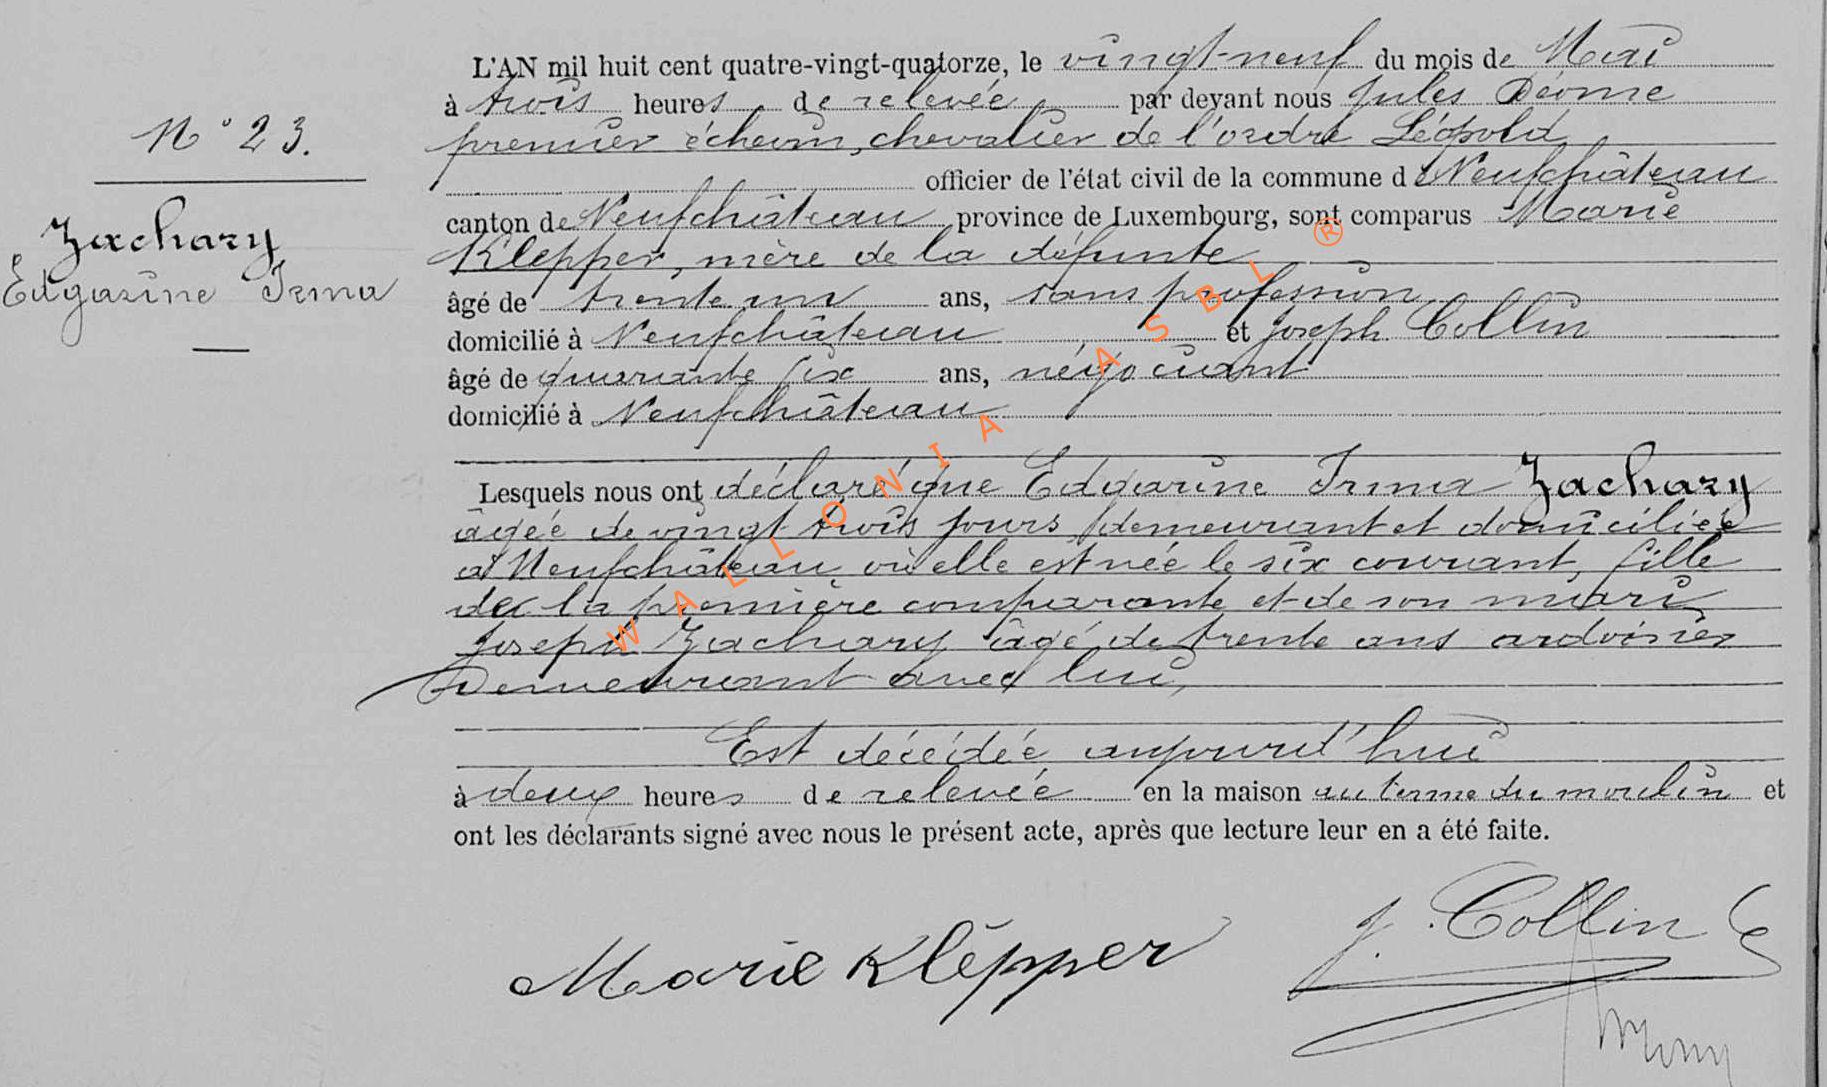 N° 23.
Zachary
Edgarine Irma
L'AN mil huit cent quatre-vingt-quatorze, le vingt-neuf du mois de Mai
à trois heures de relevée par devant nous Jules
premier échevin, chevalier de l'ordre Léopold
officier de l'état civil de la commune de Neufchâteau
canton de Neufchâteau province de Luxembourg, sont comparus Marie
Klepper, mère de la défunte
âgé de trente un ans, sans profession
domicilié à Neufchâteau et Joseph Collin
âgé de quarante six ans, négociant
domicilié à Neufchâteau
Lesquels nous ont déclaré que Edgarine Irma Zachary
âgée de vingt trois jours demeurant et domiciliée
à Neufchâteau, où elle est née le six courant, fille
de la première comparante et de son mari
Joseph Zachary âgé de trente ans ardoisier
demeurant avec lui,
Est décédée aujourd'hui
à deux heures de relevée en la maison au terme du moulin et
ont les déclarants signé avec nous le présent acte, après que lecture leur en a été faite.
Marie Klepper
J. Collin
WALLONIA ASBL ®